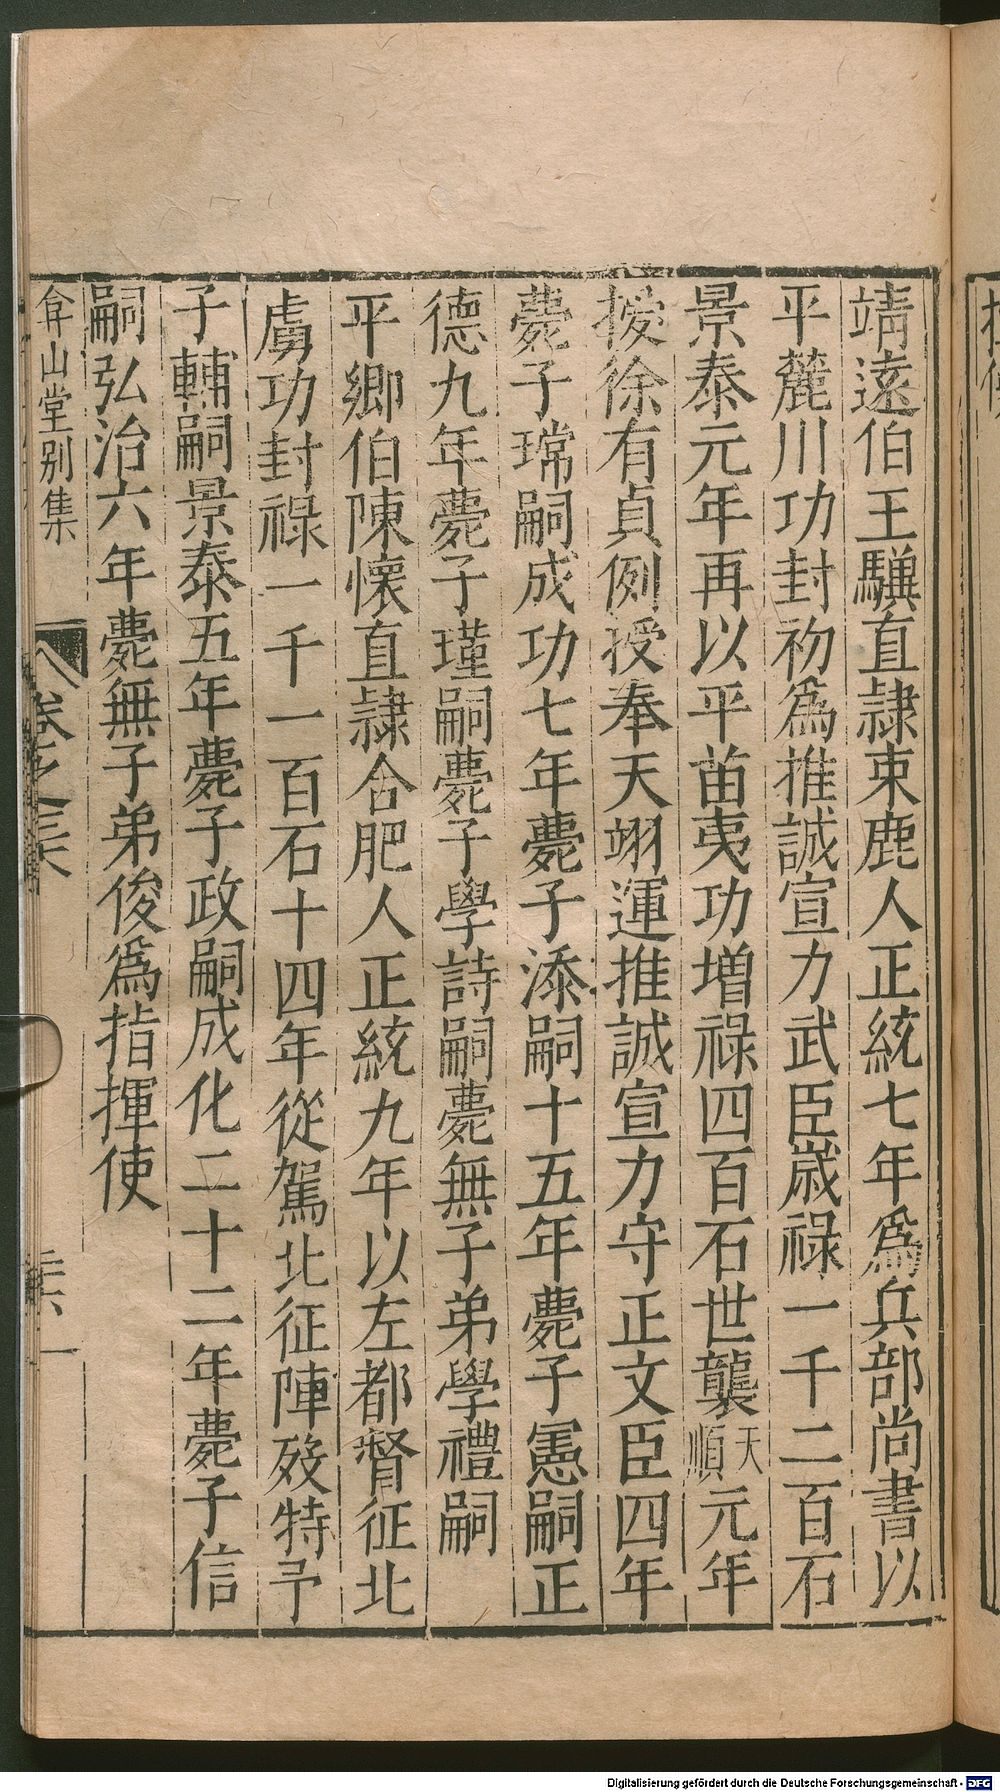 靖遠伯王驥直隸束鹿人正統七年爲兵部尚書以
平麓川功封初爲推誠宣力武臣歲祿一千二百石
景泰元年再以平苗夷功增祿四百石世襲天順元年
援徐有貞例授奉天翊運推誠宣力守正文臣四年
薨子瑺嗣成功七年薨子添嗣十五年薨子憲嗣正
德九年薨子瑾嗣薨子學詩嗣薨無子弟學禮嗣
平鄉伯陳懷直隸合肥人正統九年以左都督征北
虜功封祿一千一百石十四年從駕北征陣歿特予
子輔嗣景泰五年薨子政嗣成化二十二年薨子信
嗣弘治六年薨無子弟俊爲指揮使
弇山堂別集
卷之三六
Digitalisierung gefördert durch die Deutsche Forschungsgemeinschaft - DFG